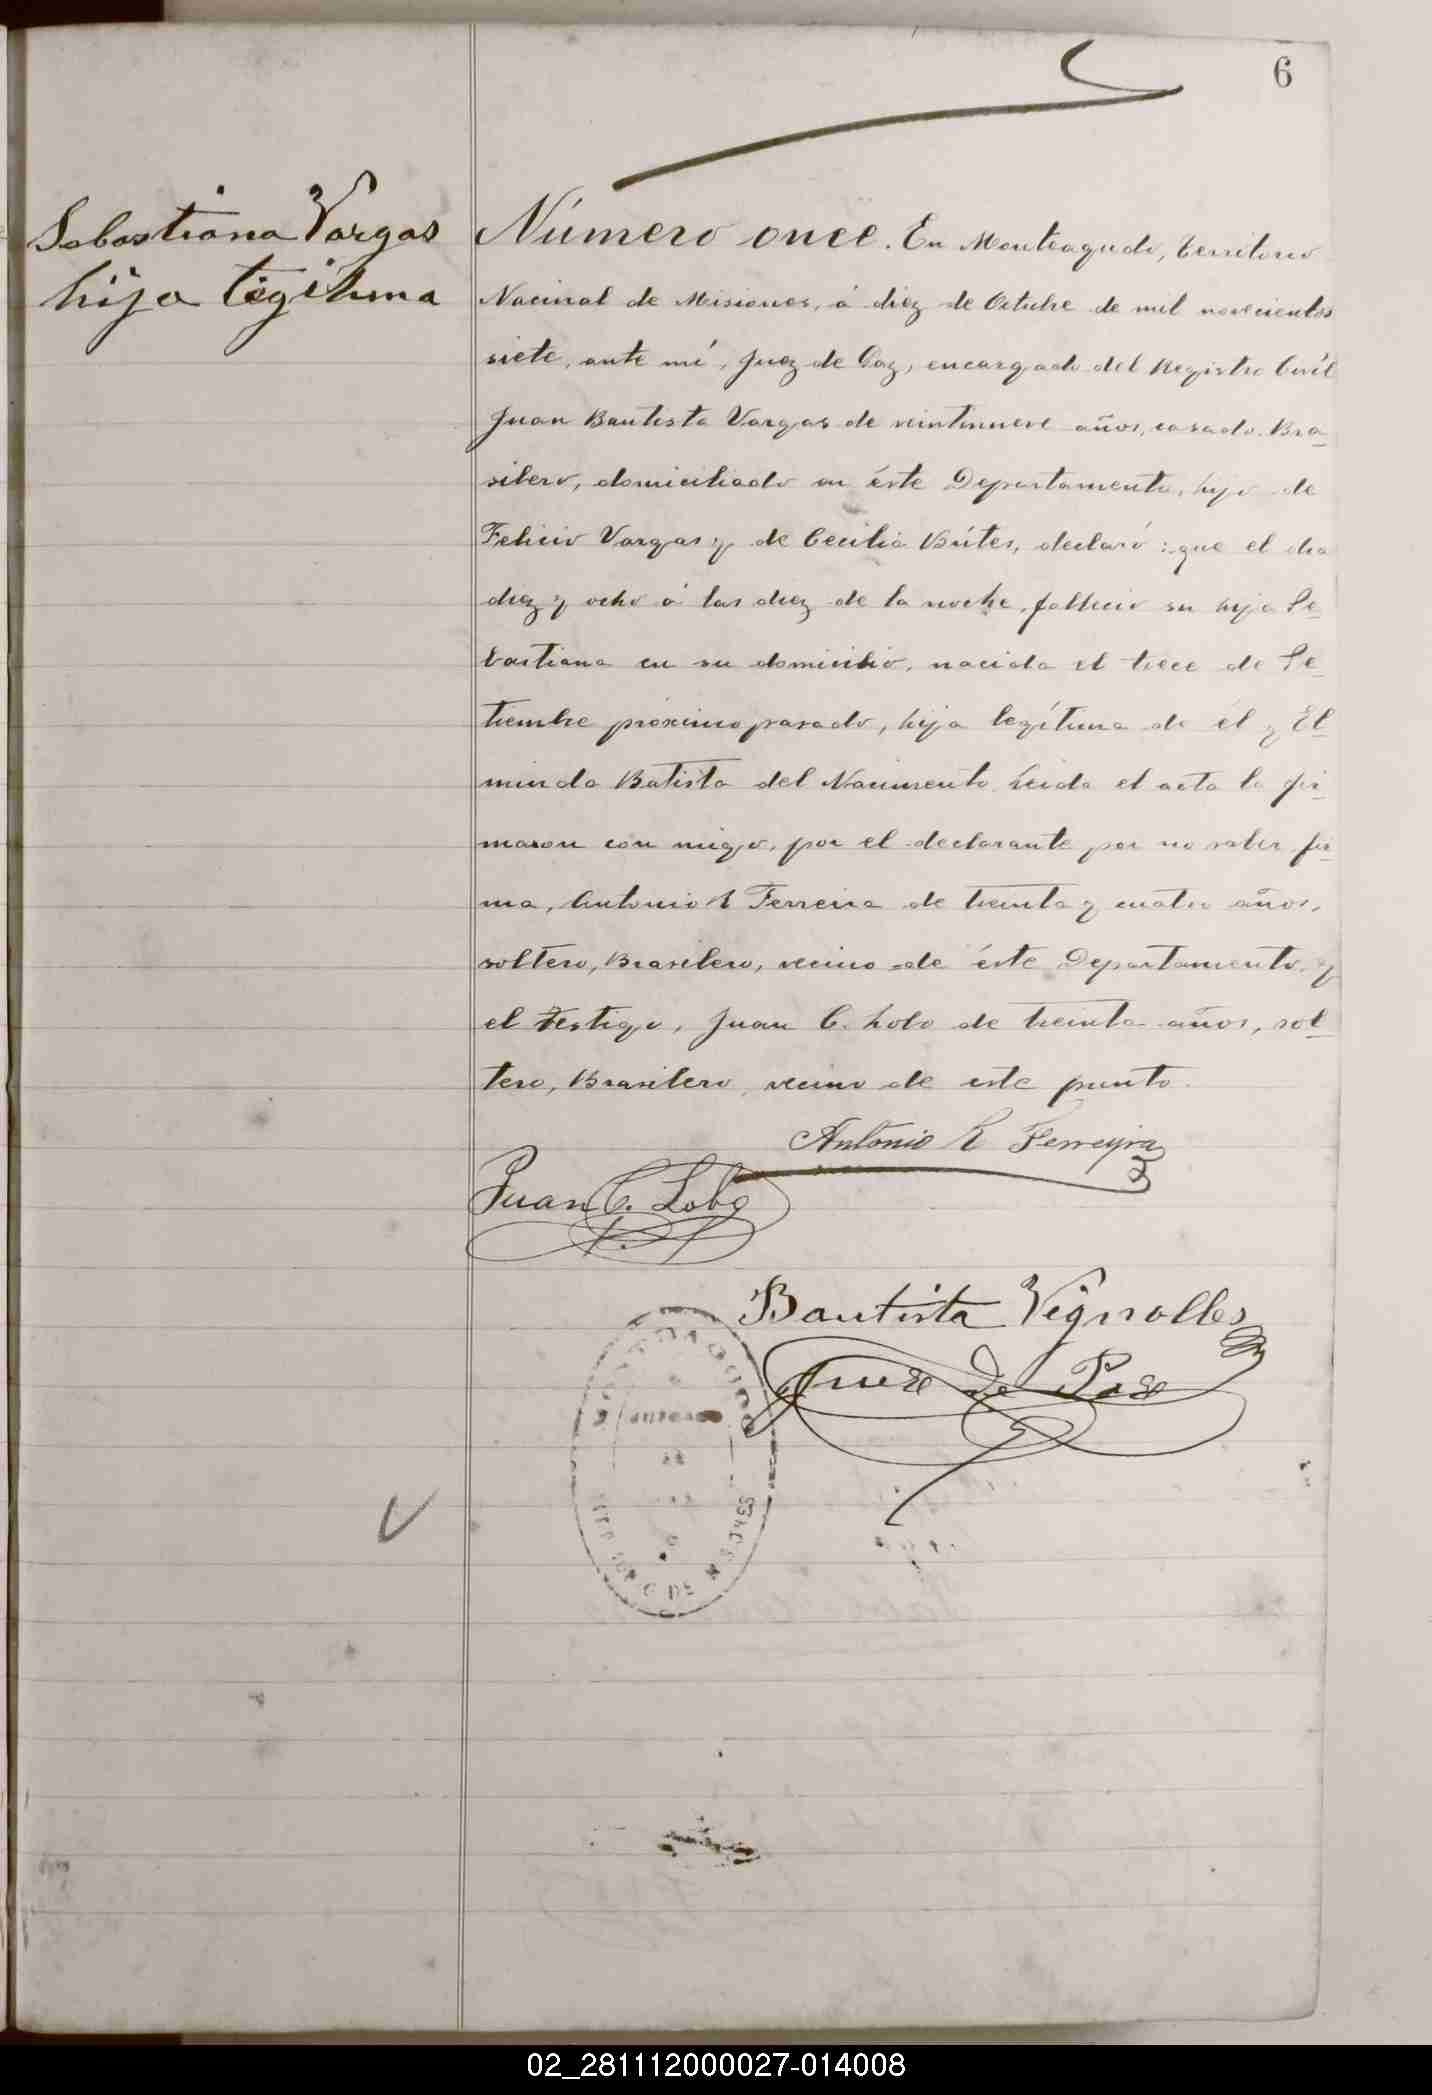 6
Sebastiana Vargas
hija legítima
Número once. En Monteagudo, Territorio
Nacinal de Misiones, á diez de Octubre de mil novecientos
siete, ante mí, Juez de Paz, encargado del Registro Civil
Juan Bautista Vargas de veintinueve años, casado, Bra-
silero, domiciliado en éste Departamento, hijo de
Felicio Vargas y de Cecilia Brítes, declaró: que el dia
diez y ocho á las diez de la noche, falleció su hija Se-
bastiana en su domicilio, nacida el trece de Se-
tiembre próximo pasado, hija legítima de él y El-
minda Batista del Nacimento. Leida el acta la fir-
maron con migo, por el declarante por no saber fir-
ma, Antonio R Ferreira de treinta y cuatro años,
soltero, Brasilero, vecino de éste Departamento, y
el Testigo, Juan C. Lobo de treinta años, sol-
tero, Brasilero, vecino de este punto.
Antonio R Ferreyra
Juan C. Lobo
Bautista Vignolles
Juez de Paz
02_281112000027-014008